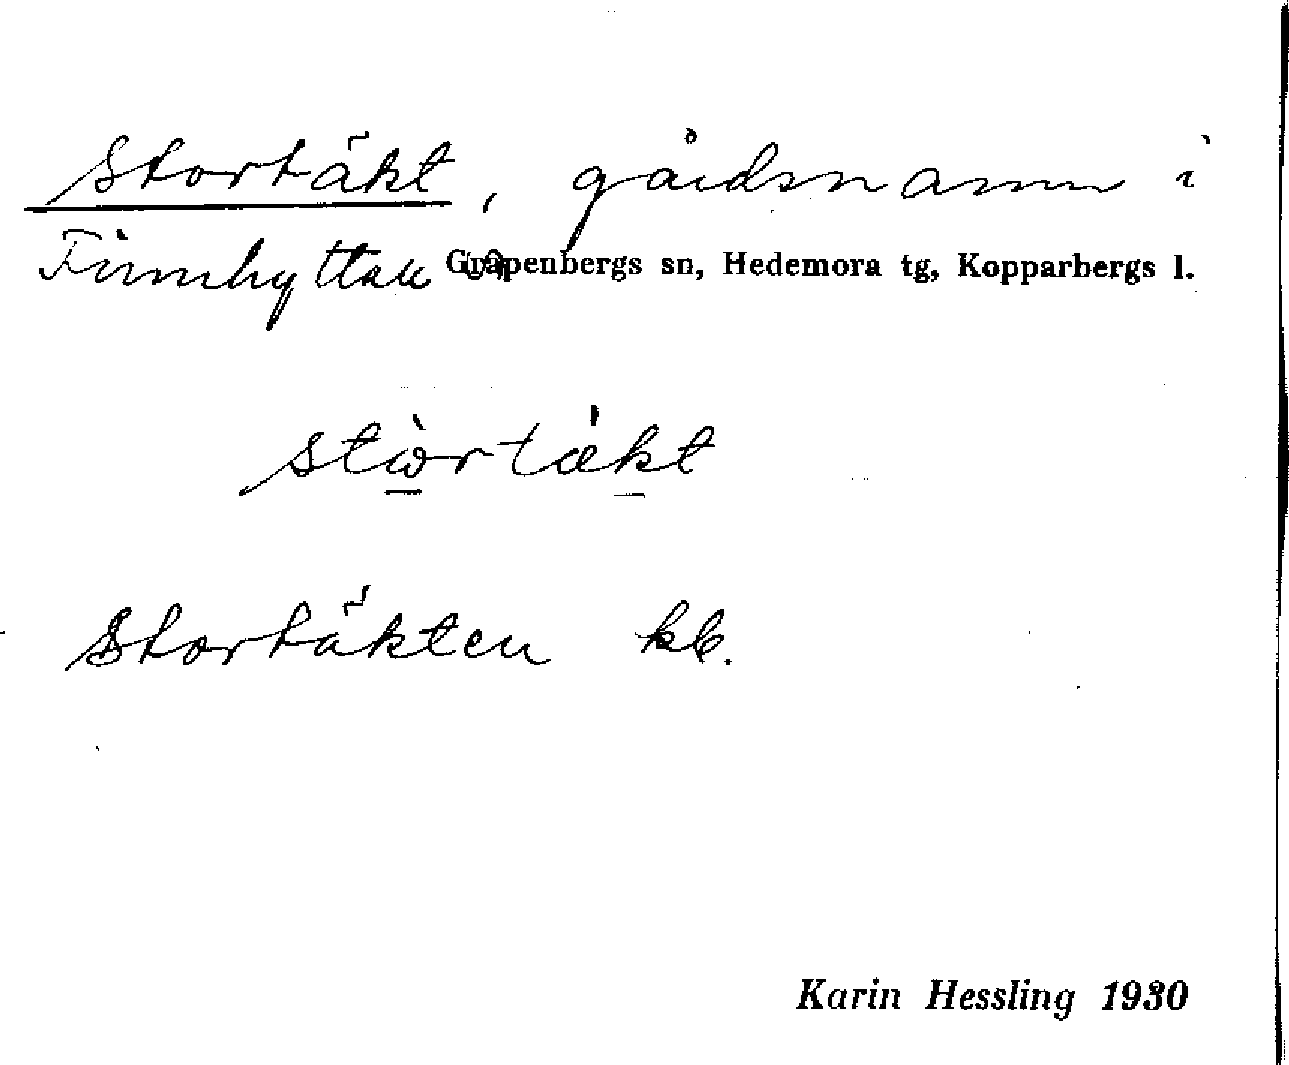 Stortäkt, gårdsnamn i
Finnhyttan Garpenbergs sn, Hedemora tg, Kopparbergs l.
stòrtækt
Stortäkten kb.
Karin Hessling 1930